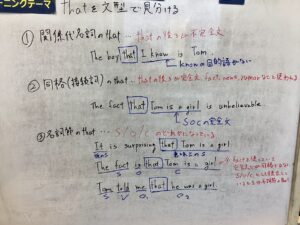 ーニングテーマ
thatを文型で見分ける
① 関係代名詞のthat … thatの後ろが不完全文
The boy that I know is Tom.
knowの目的語がない
② 同格(接続詞)のthat … thatの後ろが完全文、fact, news, rumorなどと使われる
The fact that Tom is a girl is unbelievable.
SOCの完全文
③ 名詞節のthat … S/O/Cのどれかになっている
It is surprising that Tom is a girl
仮のS
The fact is that Tom is a girl
S V C
Tom told me that he was a girl.
S V O₁ O₂